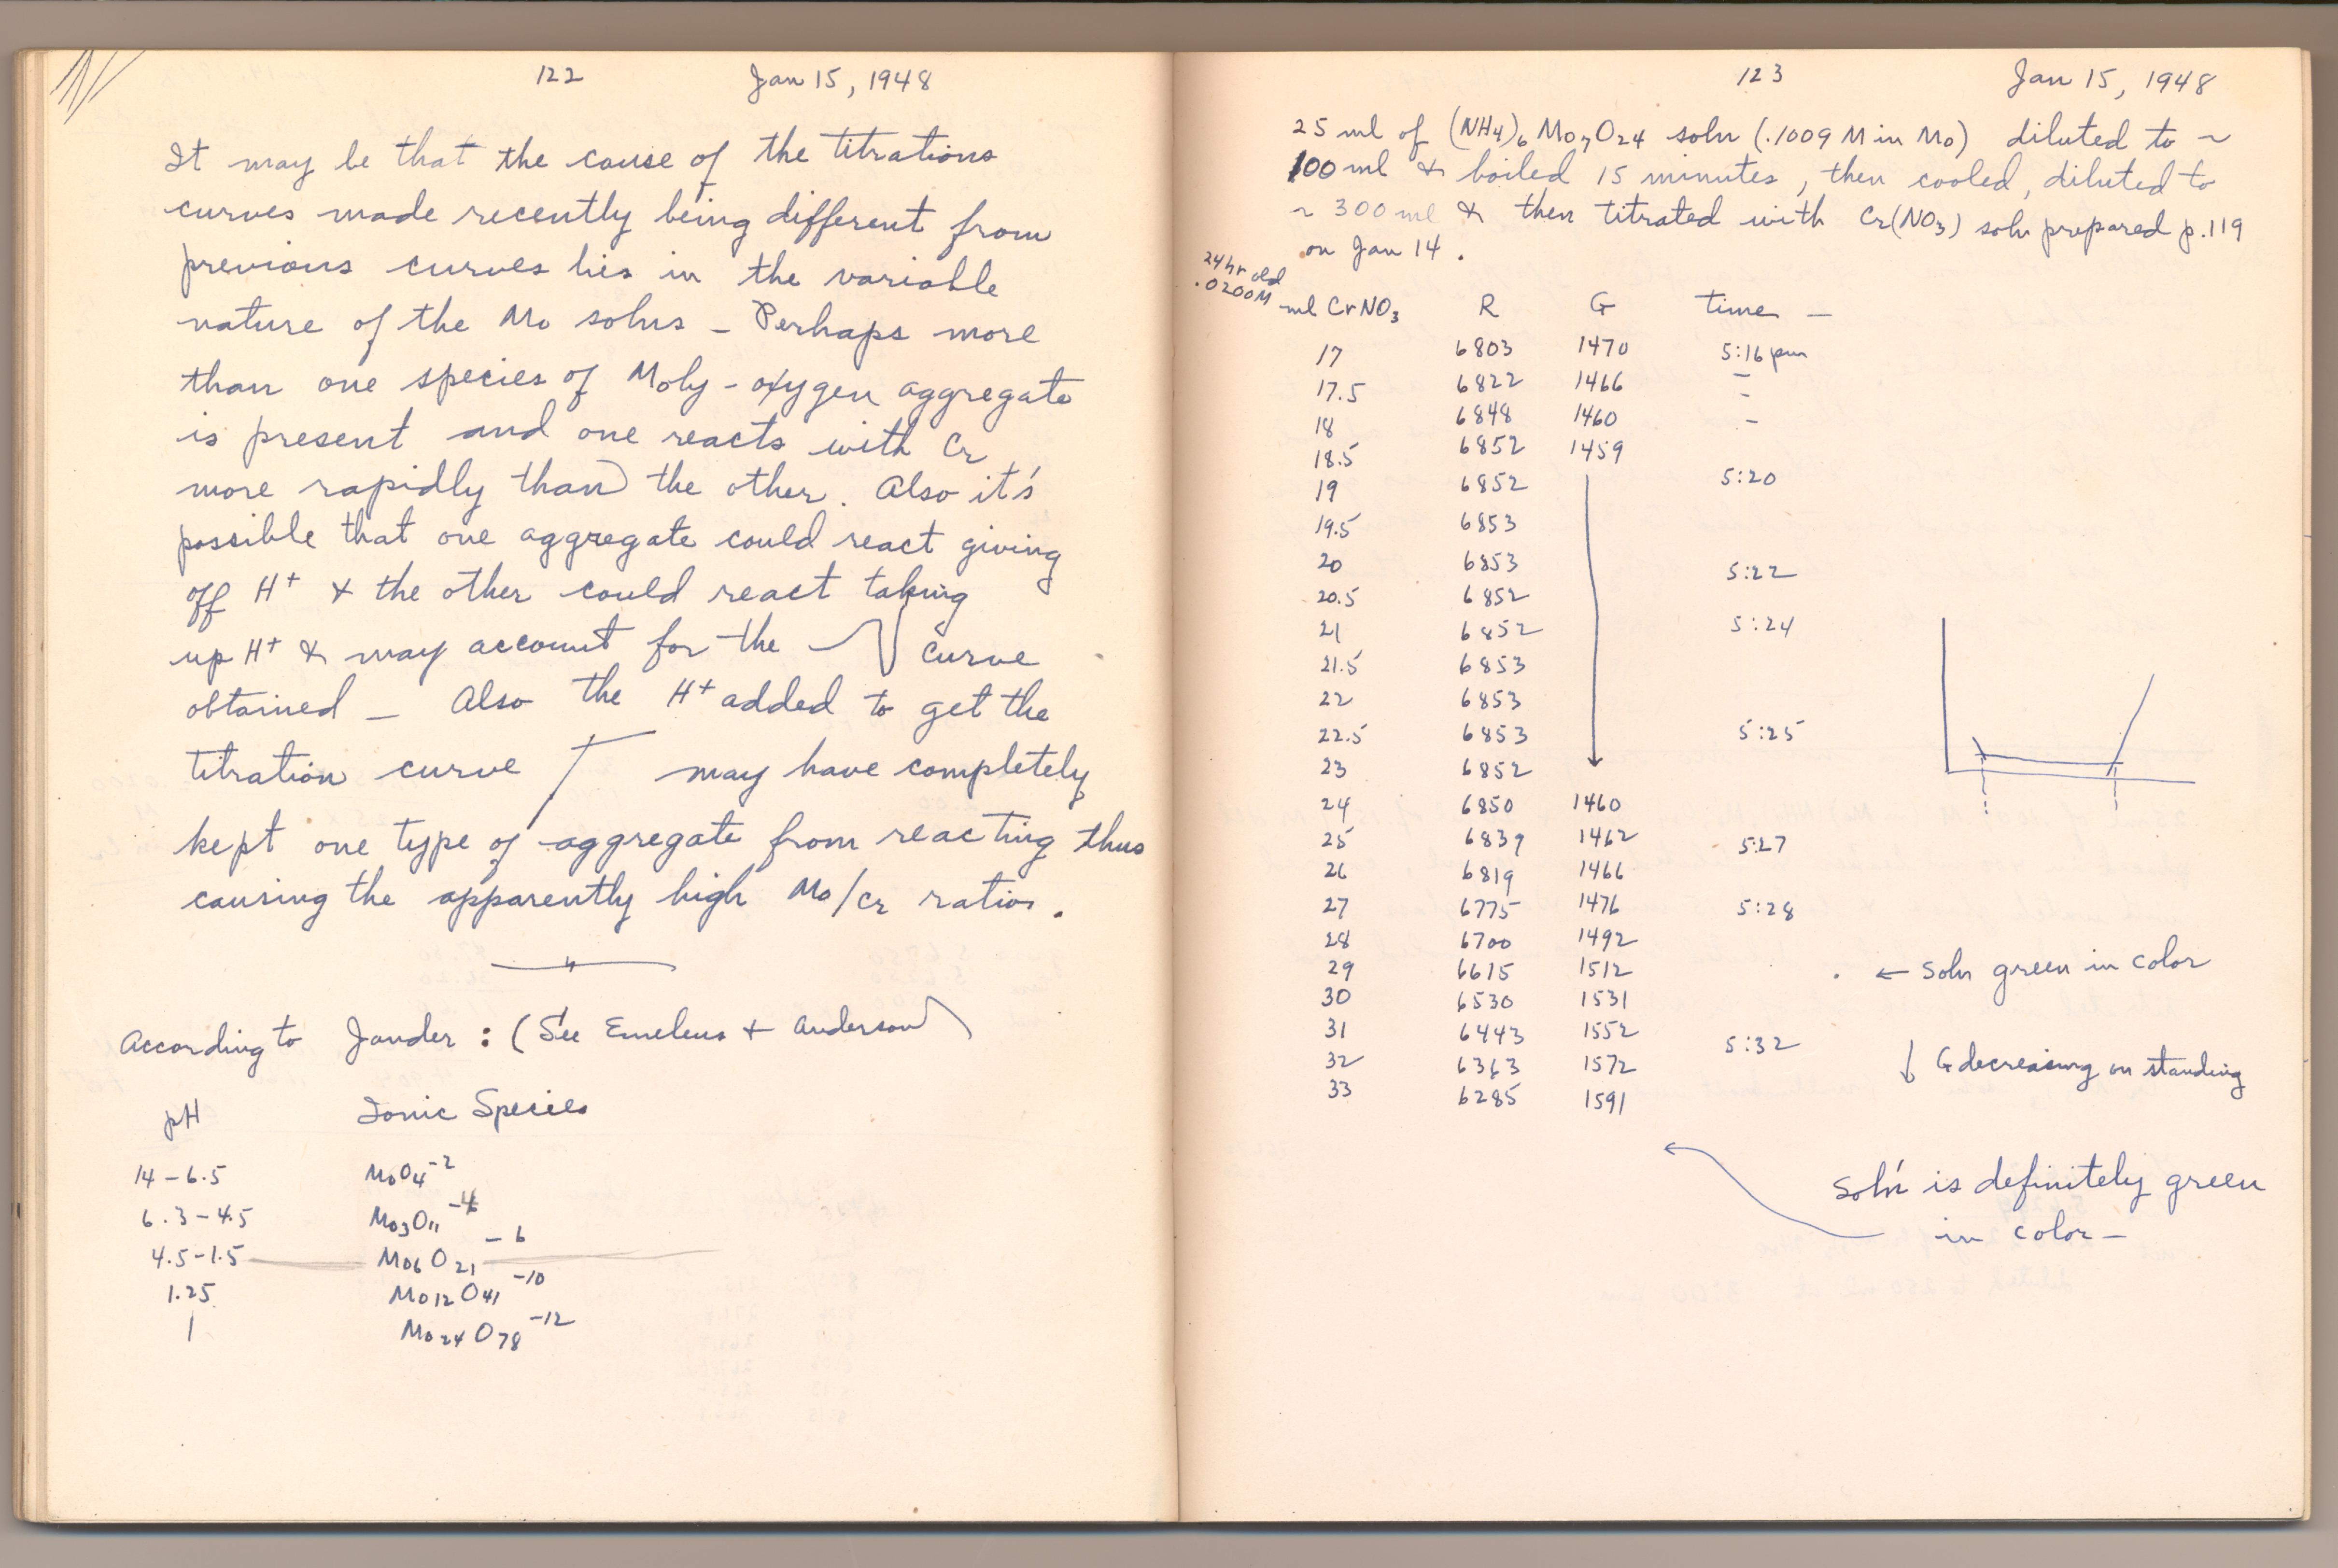 122 Jan 15, 1948
It may be that the cause of the titrations
curves made recently being different from
previous curves lies in the variable
nature of the Mo solns – Perhaps more
than one species of Moly-oxygen aggregate
is present and one reacts with Cr
more rapidly than the other. Also it's
possible that one aggregate could react giving
off H⁺ & the other could react taking
up H⁺ & may account for the curve
obtained – Also the H⁺ added to get the
titration curve may have completely
kept one type of aggregate from reacting thus
causing the apparently high Mo/Cr ratios.
According to Jander : (See Emeleus + Anderson)
pH Ionic Species
14 – 6.5 MoO₄⁻²
6.3 – 4.5 Mo₃O₁₁⁻⁴
4.5 – 1.5 Mo₆O₂₁⁻⁶
1.25 Mo₁₂O₄₁⁻¹⁰
1 Mo₂₄O₇₈⁻¹²
123 Jan 15, 1948
25 ml of (NH₄)₆Mo₇O₂₄ soln (.1009 M in Mo) diluted to ~
100 ml & boiled 15 minutes, then cooled, diluted to
~ 300 ml & then titrated with Cr(NO₃) soln prepared p.119
on Jan 14.
24 hr old
.0200M
ml CrNO₃ R G time –
17 6803 1470 5:16 pm
17.5 6822 1466 –
18 6848 1460 –
18.5 6852 1459 –
19 6852 5:20
19.5 6853
20 6853 5:22
20.5 6852
21 6852 5:24
21.5 6853
22 6853
22.5 6853 5:25
23 6852
24 6850 1460
25 6839 1462 5:27
26 6819 1466
27 6775 1476 5:28
28 6700 1492
29 6615 1512 ← Soln green in color
30 6530 1531
31 6443 1552 5:32
32 6363 1572 ↓ G decreasing on standing
33 6285 1591
Soln' is definitely green
in color –